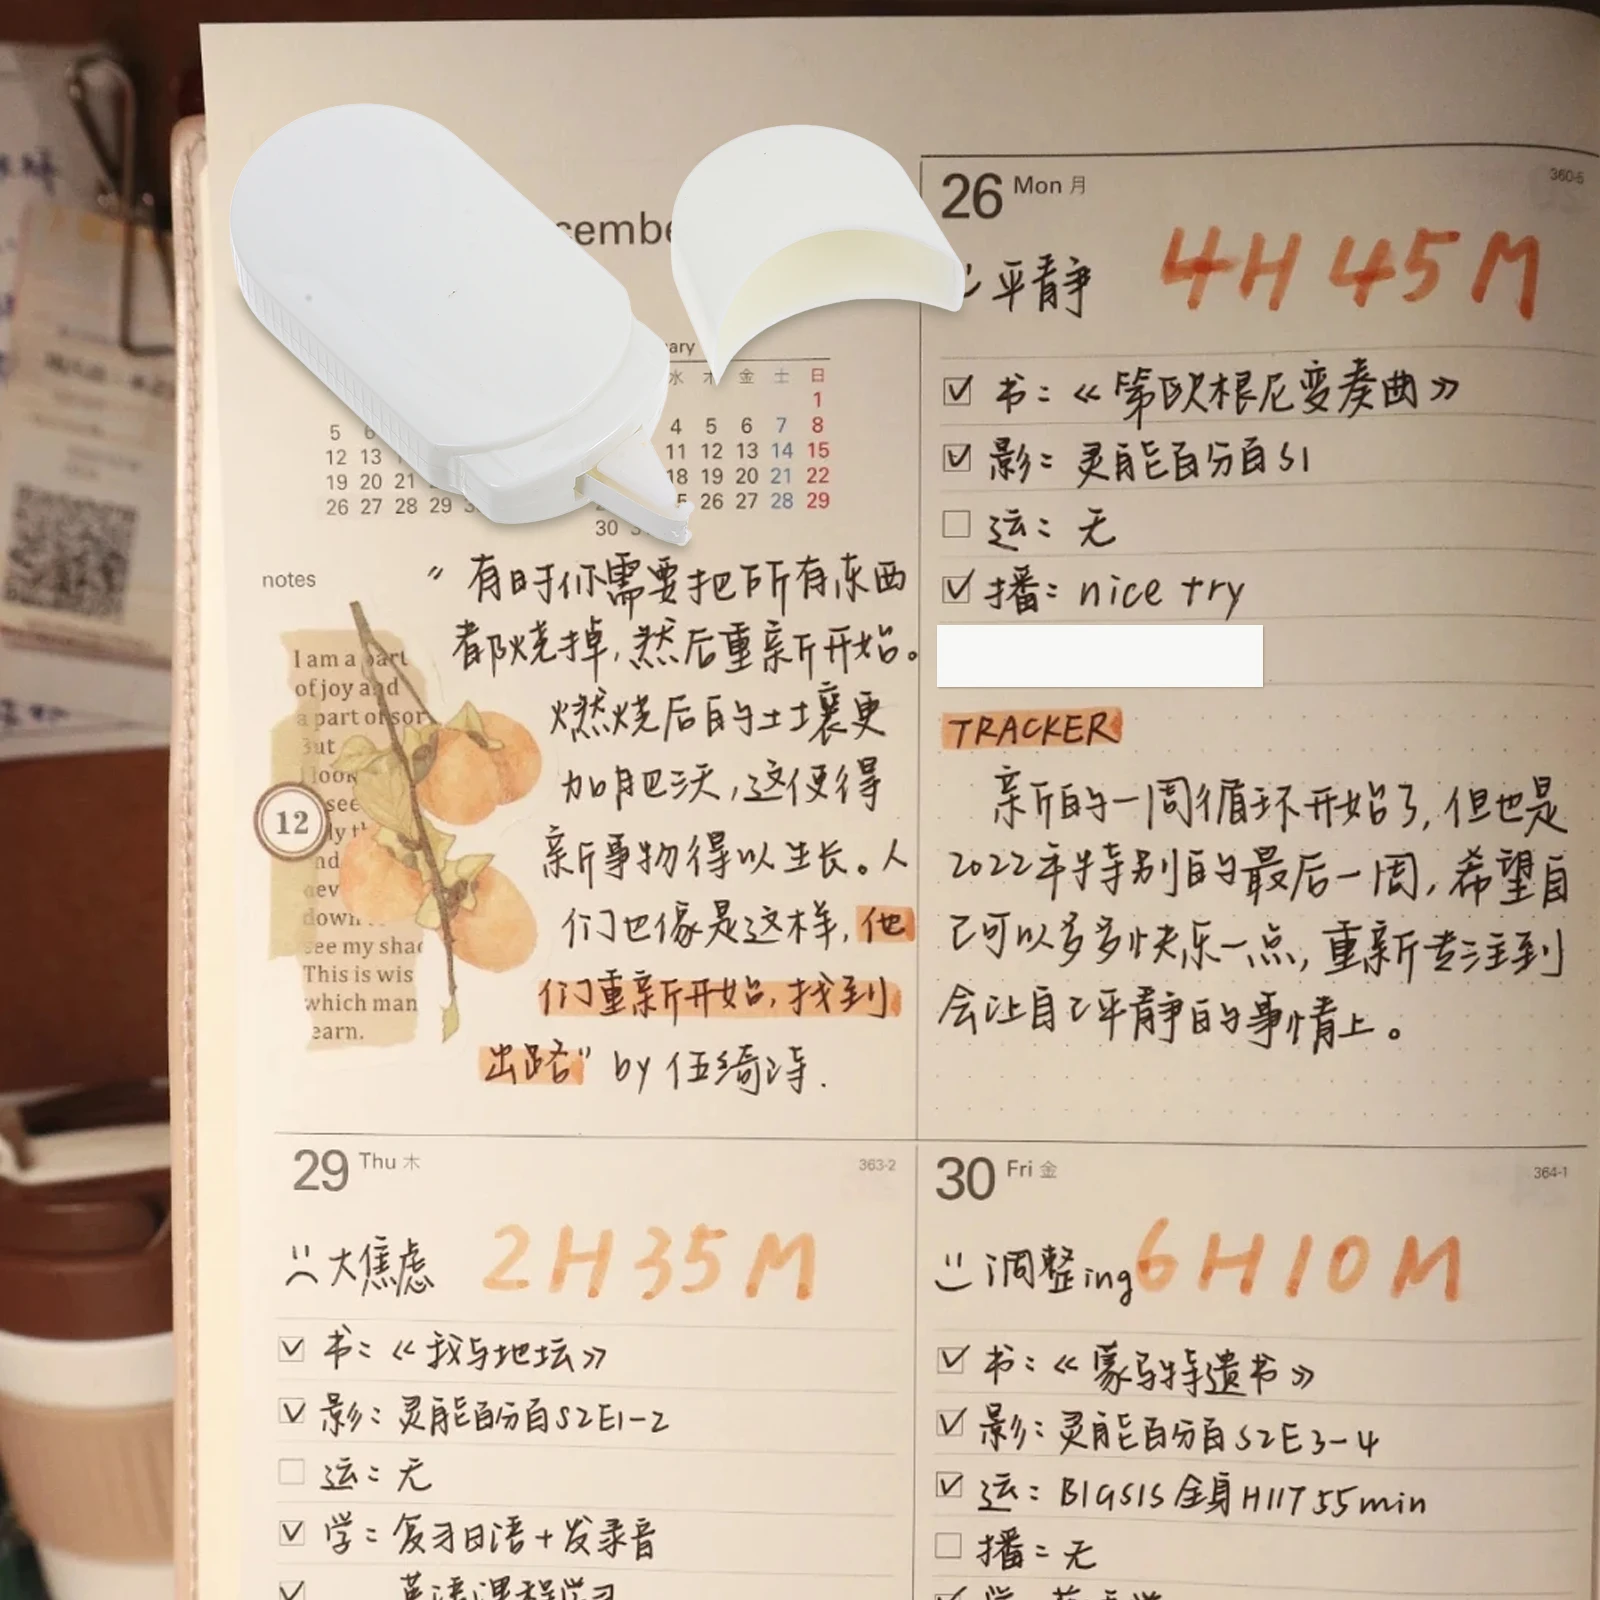 cembe
ary
水 木 金 土 日
1
5 6 4 5 6 7 8
12 13 11 12 13 14 15
19 20 21 18 19 20 21 22
26 27 28 29 26 27 28 29
30
notes
"有时你需要把所有东西
都烧掉,然后重新开始。
燃烧后的土壤更
加肥沃,这便得
新事物得以生长。人
们也像是这样,他
们重新开始,找到
出路" by 伍绮诗.
I am a part
of joy and
a part of sor
But
I look
see
ly th
nd
nev
down
see my shad
This is wis
which man
earn.
12
26 Mon 月 360-5
平静 4H 45M
书:《第欧根尼变奏曲》
影:灵能百分百S1
运:无
播:nice try
TRACKER
新的一周循环开始了,但也是
2022年特别的最后一周,希望自
己可以多多快乐一点,重新专注到
会让自己平静的事情上。
29 Thu 木 363-2
大焦虑 2H35M
书:《我与地坛》
影:灵能百分百S2E1-2
运:无
学:复习日语+发录音
英语课程学习
30 Fri 金 364-1
调整ing 6H10M
书:《蒙马特遗书》
影:灵能百分百S2E3-4
运:BIGSIS全身HIIT 55min
播:无